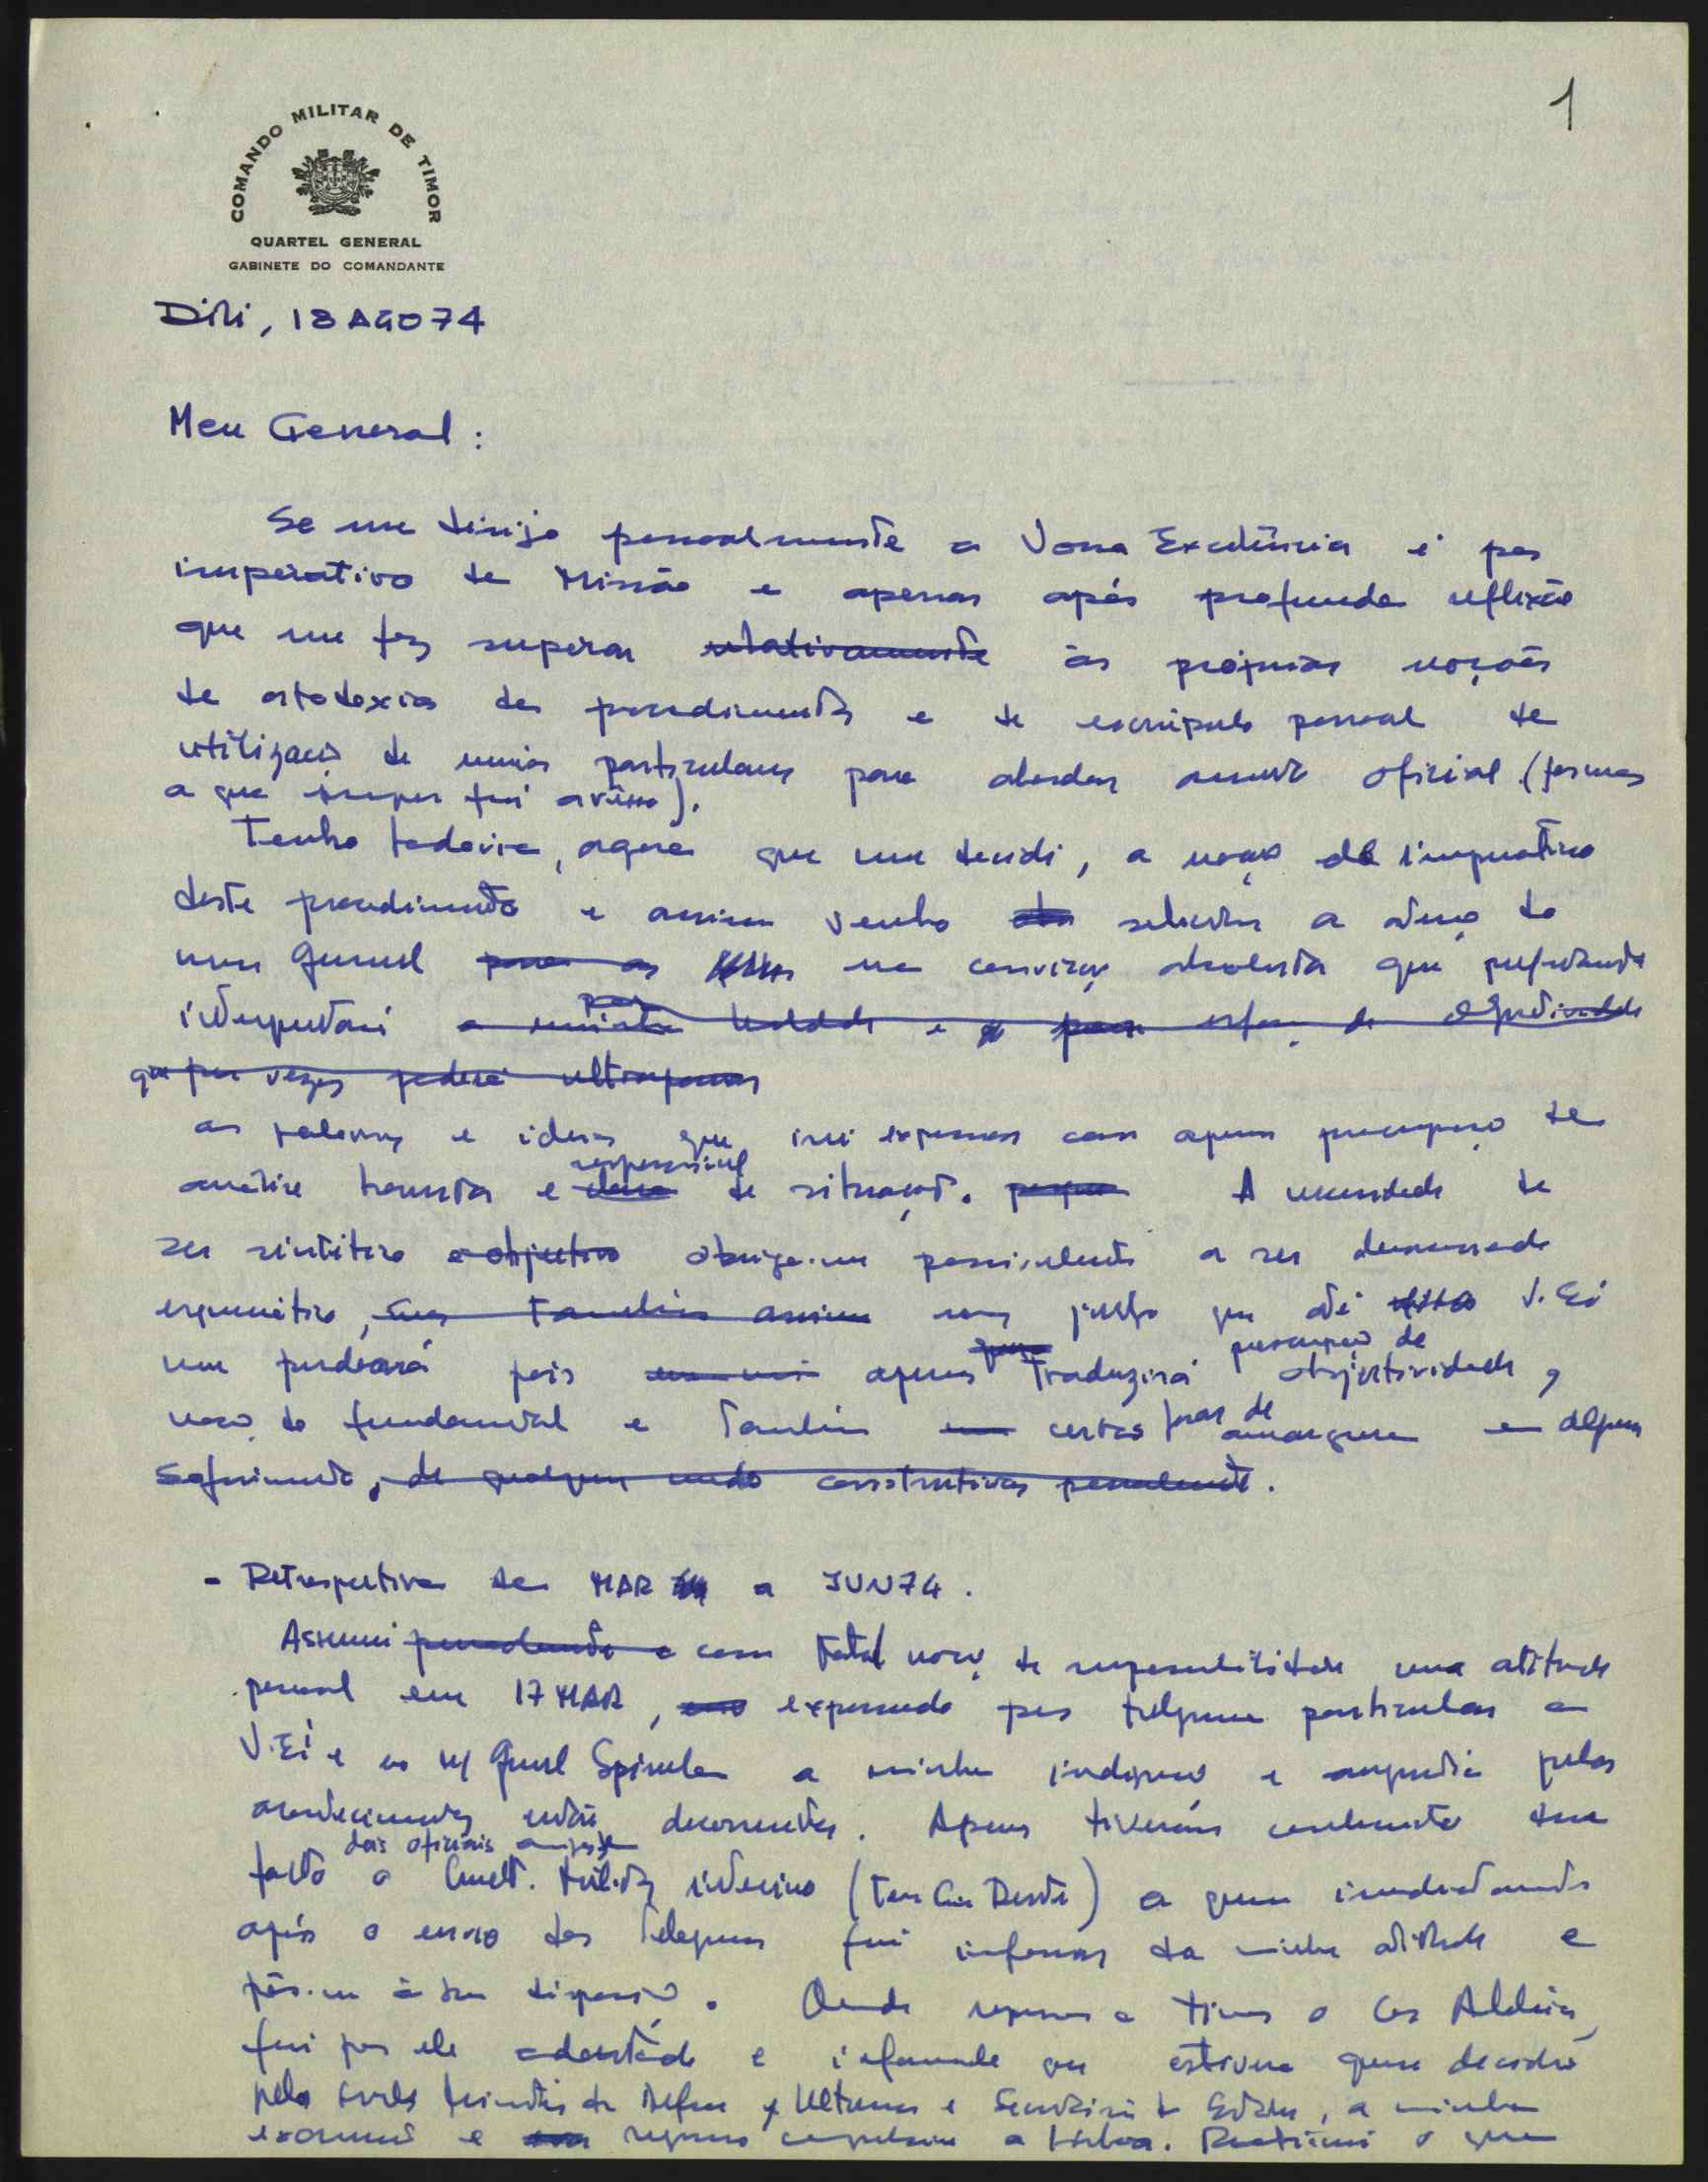 1
COMANDO MILITAR DE TIMOR
QUARTEL GENERAL
GABINETE DO COMANDANTE
Dili, 18 AGO 74
Meu General:
Se me dirijo pessoalmente a Vossa Excelência é por
imperativo de Missão e apenas após profunda reflexão
que me fez superar relativamente as próprias noções
de ortodoxia de procedimentos e de escrúpulo pessoal de
utilização de meios particulares para abordar assunto oficial (formas
a que sempre fui avesso).
Tenho todavia, agora que me decidi, a noção de imperativo
deste procedimento e assim venho solicitar a atenção do
meu General para as na convicção absoluta que perfeitamente
interpretará a minha e para esforço de objectividade
que por vezes poderá ultrapassar
as palavras e ideias que irei expressar com apenas preocupação de
análise honesta e responsável de situação. porque A necessidade de
ser sintético e objectivo obriga-me possivelmente a ser demasiado
esquemático, mas também assim mas julgo que até V. Exª
me perdoará pois apenas traduzirá preocupação de objectividade,
noção do fundamental e também certas de amargura e algum
sofrimento, de qualquer modo construtivas.
- Retrospectiva de MAR a JUN 74.
Assumi com total noção de responsabilidade uma atitude
pessoal em 17 MAR, expressando por telegrama particular a
V. Exª e ao General Spínola a minha indignação e pelos
acontecimentos então decorrentes. Apenas tiveram conhecimento deste
facto dois oficiais e o Cmdt. Militar interino (Ten Cor) a quem imediatamente
após o envio dos telegramas fui informar da minha atitude e
pôs-me à sua disposição. Quando regressou a Timor o Cor Aldeia,
fui por ele e informado que estivera quase decidido
pelos Ministérios da Defesa e Ultramar e, a minha
exoneração e regresso compulsivo a Lisboa. o que